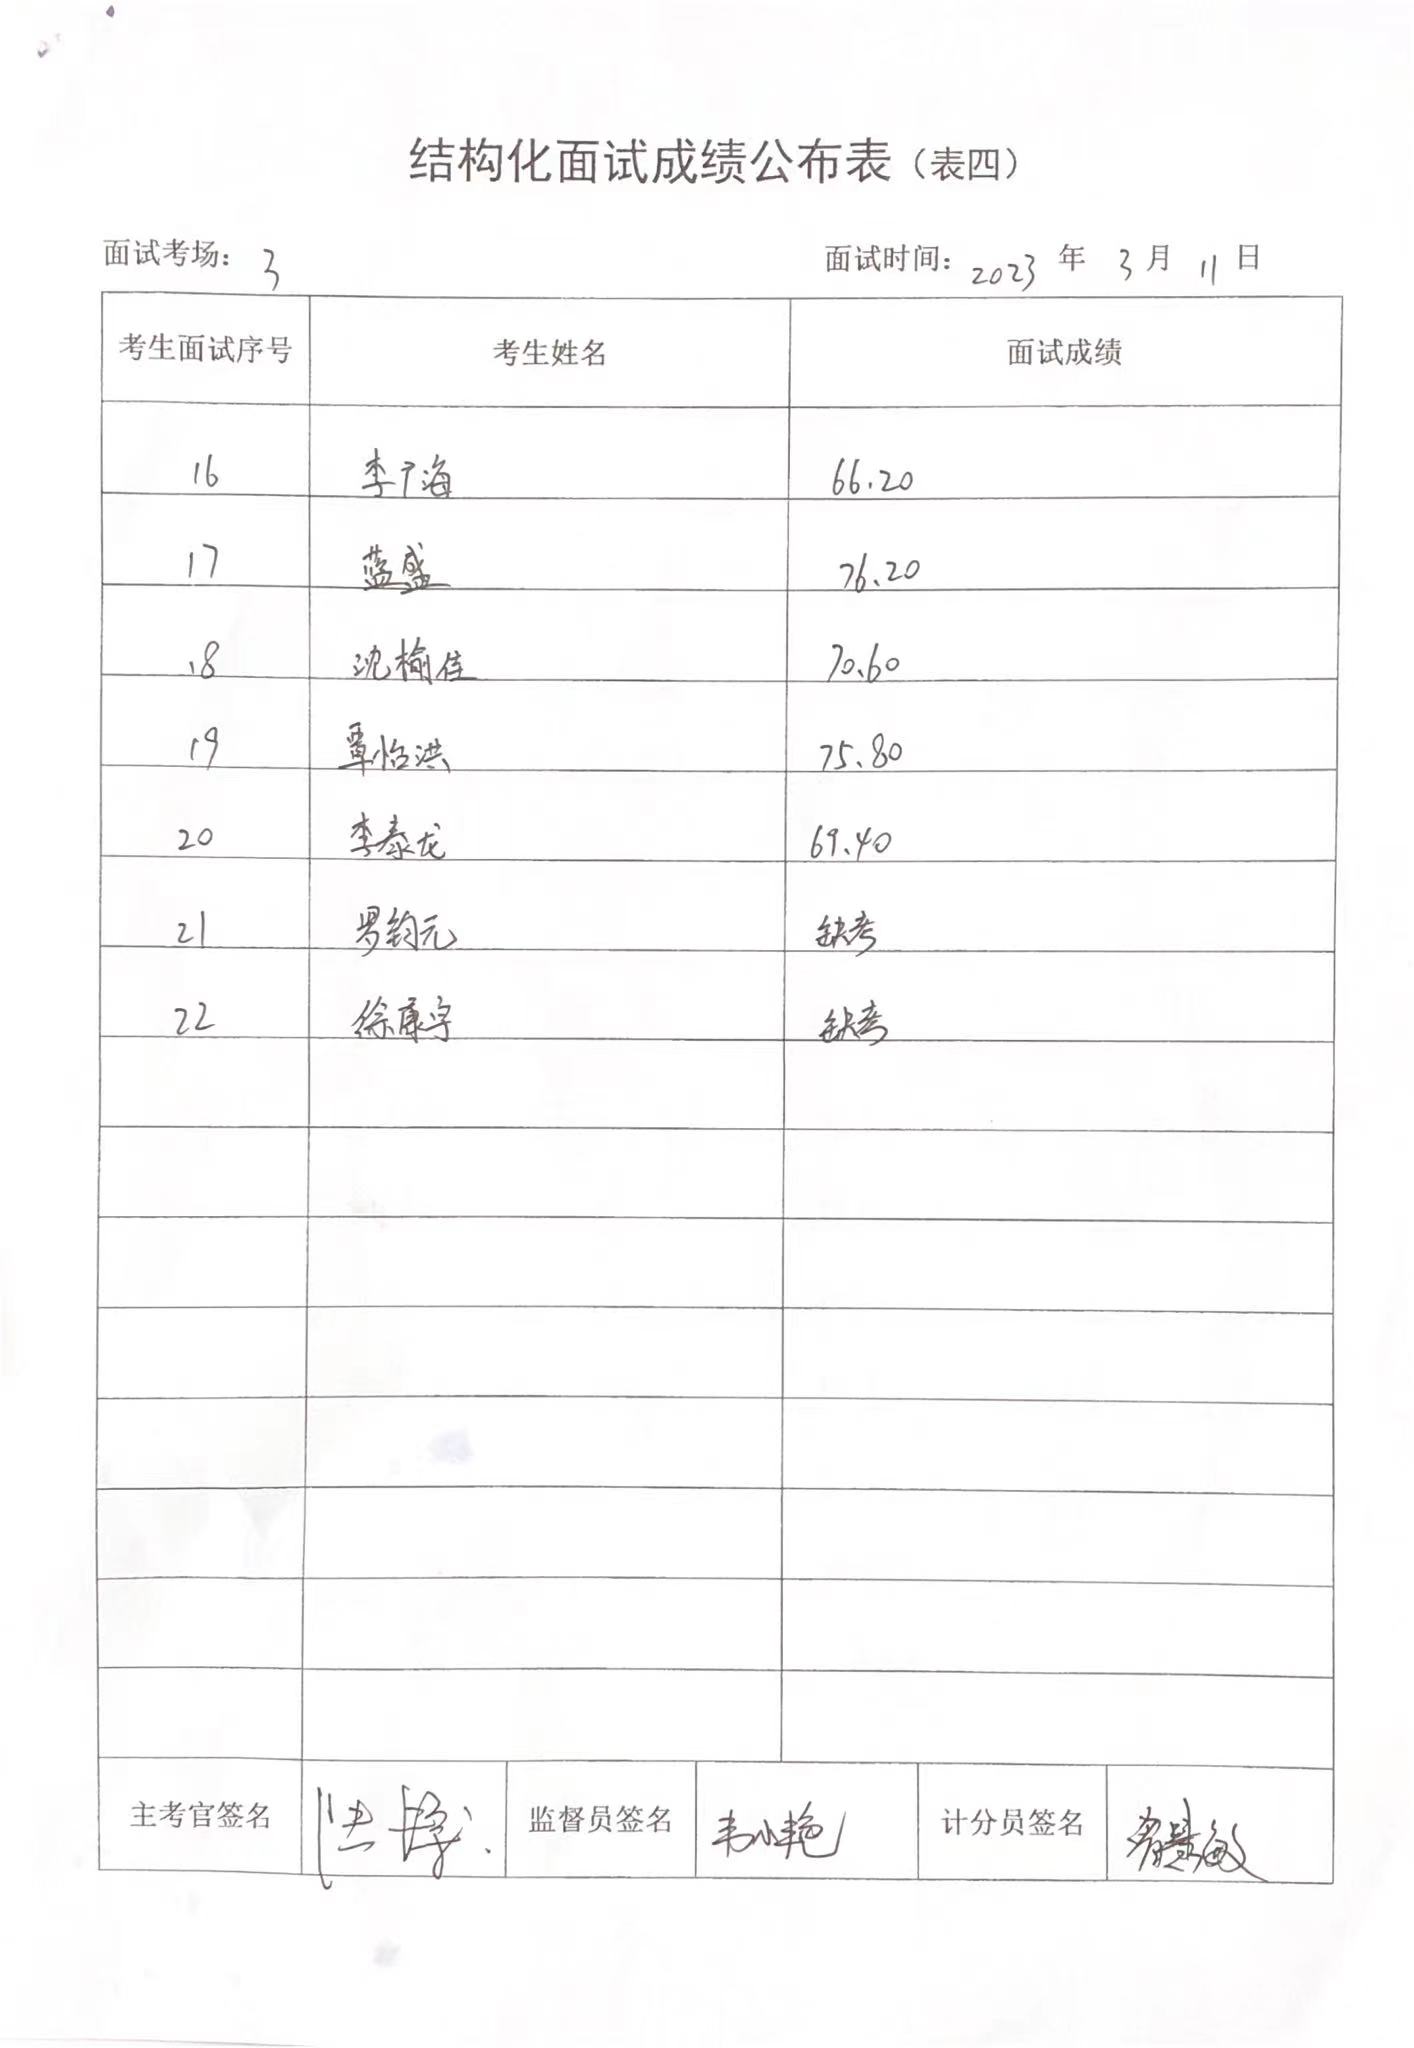 结构化面试成绩公布表（表四）
面试考场：3 面试时间：2023 年 3 月 11 日
考生面试序号 考生姓名 面试成绩
16 李广海 66.20
17 蓝盛 76.20
18 沈榆佳 70.60
19 覃怡洪 75.80
20 李泰龙 69.40
21 罗钧元 缺考
22 徐康宇 缺考
主考官签名 监督员签名 韦小艳 计分员签名